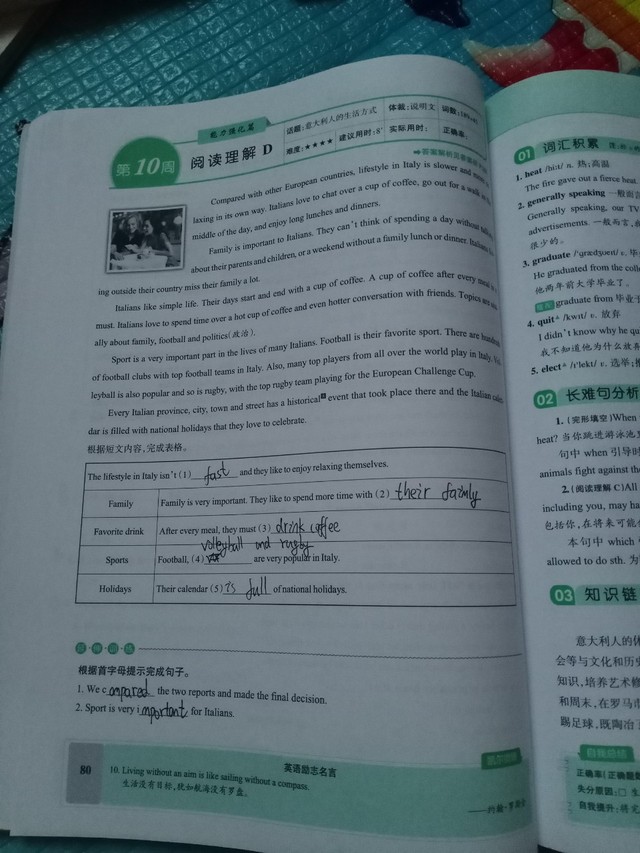 能力强化篇
第10周 阅读理解 D
话题:意大利人的生活方式 体裁:说明文 词数:
难度:★★★★ 建议用时:8' 实际用时: 正确率:
Compared with other European countries, lifestyle in Italy is slower and
laxing in its own way. Italians love to chat over a cup of coffee, go out for a walk
middle of the day, and enjoy long lunches and dinners.
Family is important to Italians. They can't think of spending a day without
about their parents and children, or a weekend without a family lunch or dinner.
ing outside their country miss their family a lot.
Italians like simple life. Their days start and end with a cup of coffee. A cup of coffee after every
must. Italians love to spend time over a hot cup of coffee and even hotter conversation with friends. Topics are
ally about family, football and politics(政治).
Sport is a very important part in the lives of many Italians. Football is their favorite sport. There are
of football clubs with top football teams in Italy. Also, many top players from all over the world play in Italy.
leyball is also popular and so is rugby, with the top rugby team playing for the European Challenge Cup.
Every Italian province, city, town and street has a historical event that took place there and the Italian
dar is filled with national holidays that they love to celebrate.
根据短文内容,完成表格。
The lifestyle in Italy isn't (1) fast and they like to enjoy relaxing themselves.
Family Family is very important. They like to spend more time with (2) their faimly
Favorite drink After every meal, they must (3) drink coffee
volleyball and rugby
Sports Football, (4) are very popular in Italy.
Holidays Their calendar (5) is full of national holidays.
根据首字母提示完成句子。
1. We compared the two reports and made the final decision.
2. Sport is very important for Italians.
80
英语励志名言
10. Living without an aim is like sailing without a compass.
生活没有目标,犹如航海没有罗盘。
01 词汇积累
1. heat /hiːt/ n. 热;高温
The fire gave out a fierce heat.
2. generally speaking 一般
Generally speaking, our TV
advertisements. 一般而言,
很少的。
3. graduate
He graduated from the
他两年前大学毕业了。
graduate from 毕业于
4. quit /kwɪt/ v. 放弃
I didn't know why he
我不知道他为什么放弃
5. elect /ɪ'lekt/ v. 选举;
02 长难句分析
1. (完形填空)When
heat? 当你跳进游泳池
句中 when 引导时
animals fight against the
2.(阅读理解 C)All
including you, may
包括你,在将来可能
本句中 which
allowed to do sth. 为
03 知识链
意大利人的休
会等与文化和历史
知识,培养艺术修
和周末,在罗马市
踢足球,既陶冶了
自我总结
正确率(正确题数
失分原因:□
自我提升: